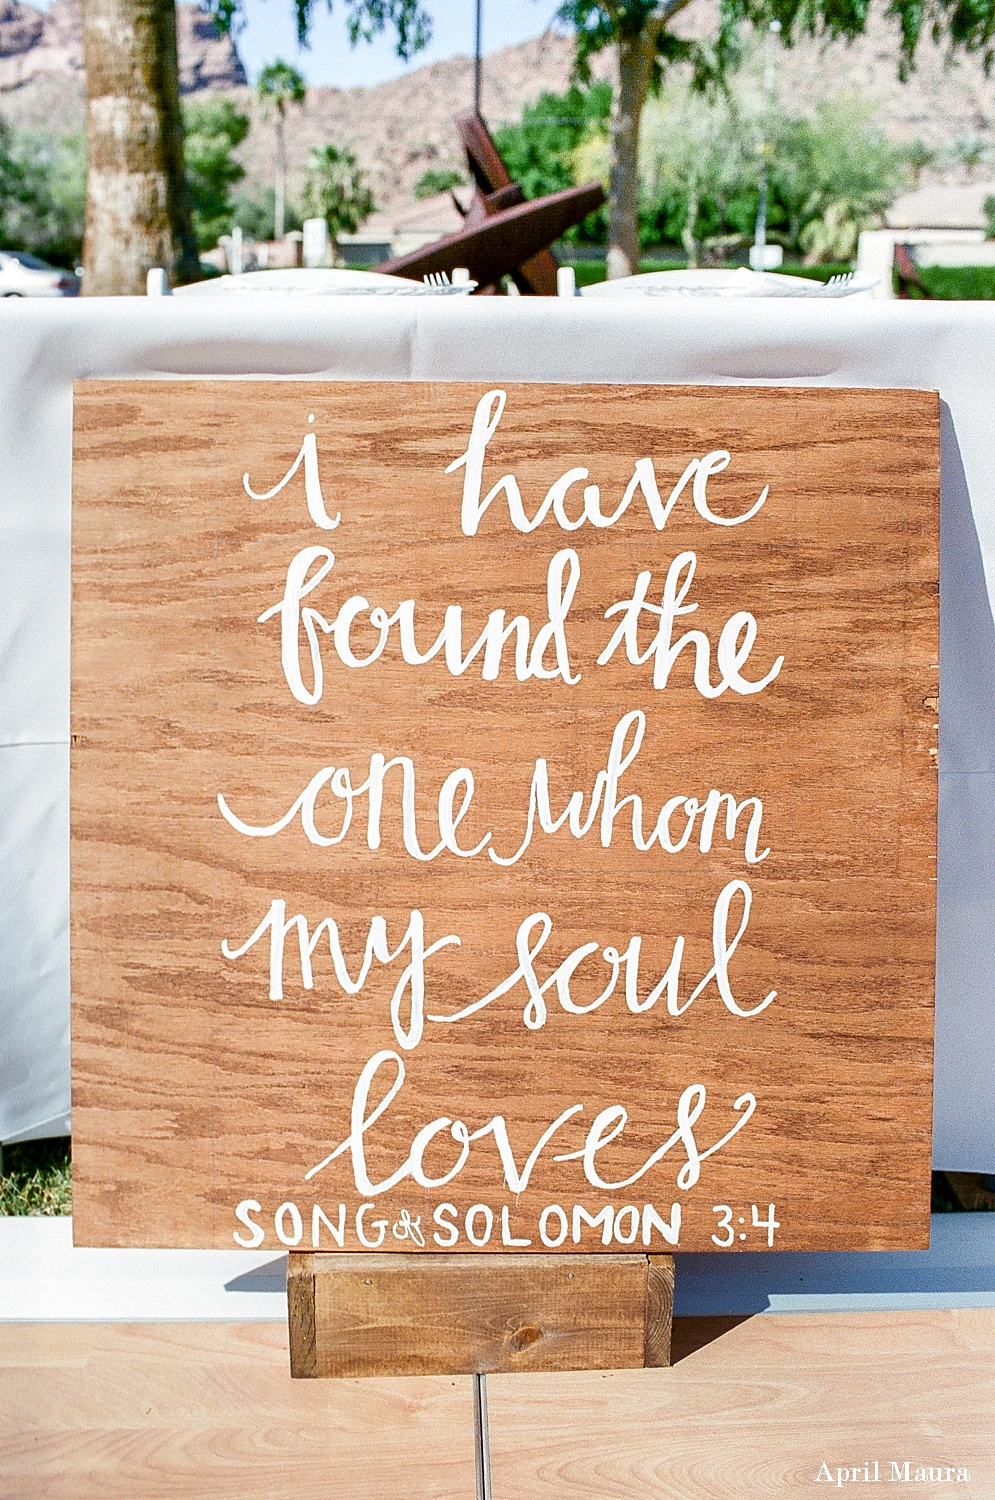 i have
found the
one whom
my soul
loves
SONG of SOLOMON 3:4
April Maura